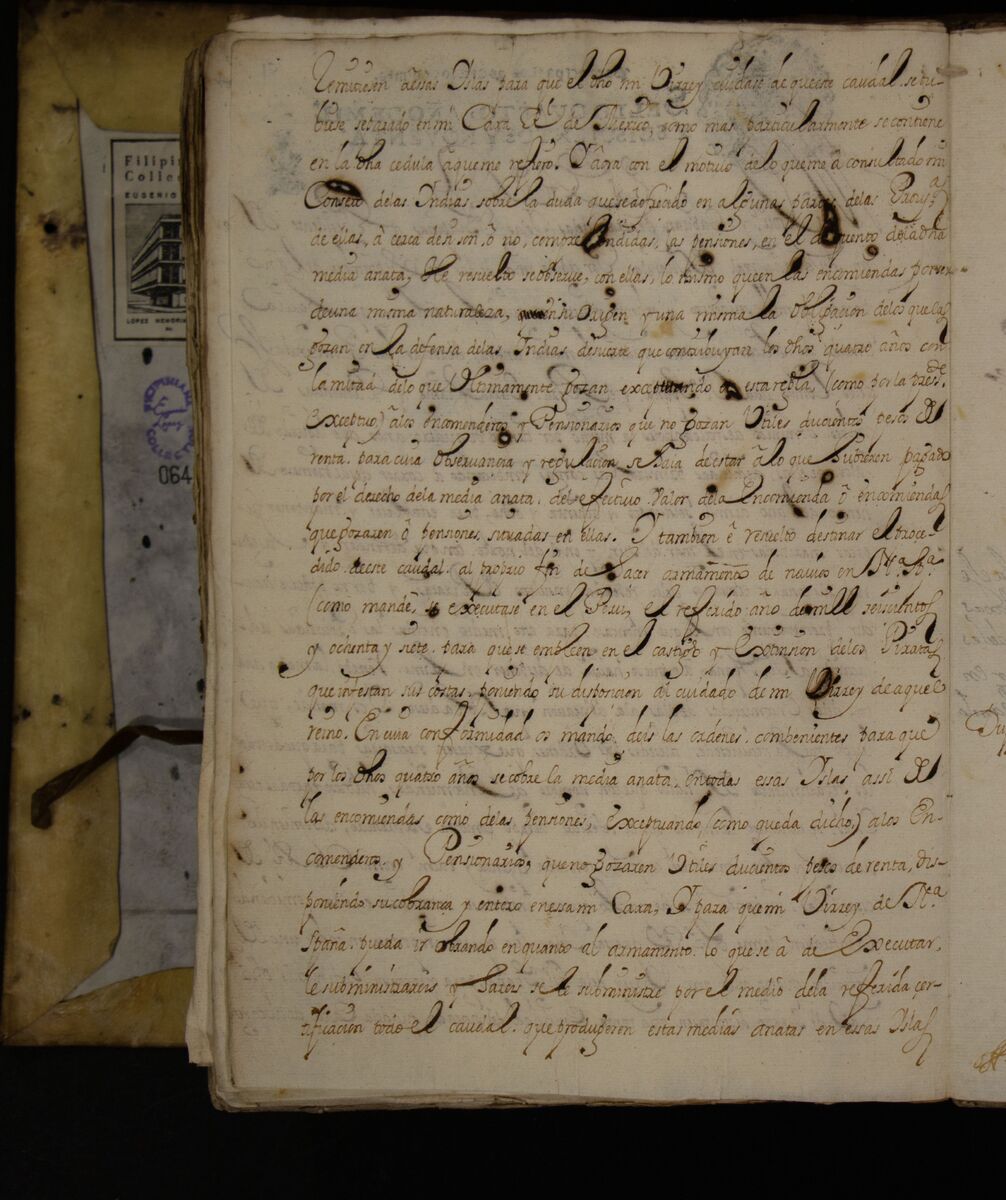 Remitiesen dessas Yslas para que el dho mi Virrey cuidase de que este caudal se tu-
biese separado en mi Caxa Rl de Mexico, como mas particularmente se contiene
en la dha cedula à que me refiero. Y aora con el motivo de lo que me à consultado mi
Consejo de las Indias sobre la duda que se à ofrecido en algunas partes de las Provas
de ellas, à cerca de si son, ò no, comprehendidas, las pensiones, en el descuento de la dha
media anata, He resuelto se observe, con ellas, lo mismo que en las encomiendas por ser
de una misma naturaleza, y una misma la obligacion de los que las
gozan en la defensa de las Indias de suerte que contribuyan los dhos quatro años con
la mitad de lo que Ultimamente gozan exceptuando de esta regla, (como por la preste.
exceptuo) à los encomenderos y Pensionarios que no gozan Utiles ducientos pesos de
renta. para cuia observancia y regulacion se haia de estar à lo que hubieren pagado
por el derecho de la media anata. del efectivo valor de la Encomienda ò encomiendas
que gozaren ò pensiones situadas en ellas. Y tambien è resuelto destinar el proce-
dido de este caudal al proprio fin de hacer armamento de navios en Na. Ea.
(como mandè, se executase en el Peru, el referido año de mill seiscientos
y ochenta y siete. para que se empleen en el castigo y extinsion de los Piratas
que infestan sus costas. poniendo su disposicion al cuidado de mi Virrey de aquel
reino. En cuia conformidad os mando, deis las ordenes combenientes para que
por los dhos quatro años se cobre la media anata, en todas essas Yslas assi de
las encomiendas como de las pensiones, exceptuando (como queda dicho,) a los En-
comenderos y Pensionarios, que no gozaren Utiles ducientos pesos de renta, dis-
poniendo su cobranza y entero en essa mi Caxa, Y para que mi Virrey de Na.
España. pueda ir obrando en quanto al armamento. lo que se à de Executar,
le subministrareis y hareis se le subministre por el medio de la referida cer-
tificacion todo el caudal. que produgeren estas medias anatas en essas Yslas
Filipin
Collec
EUGENIO
LOPEZ MEMORI
FILIPINIANA
COLLECT
064